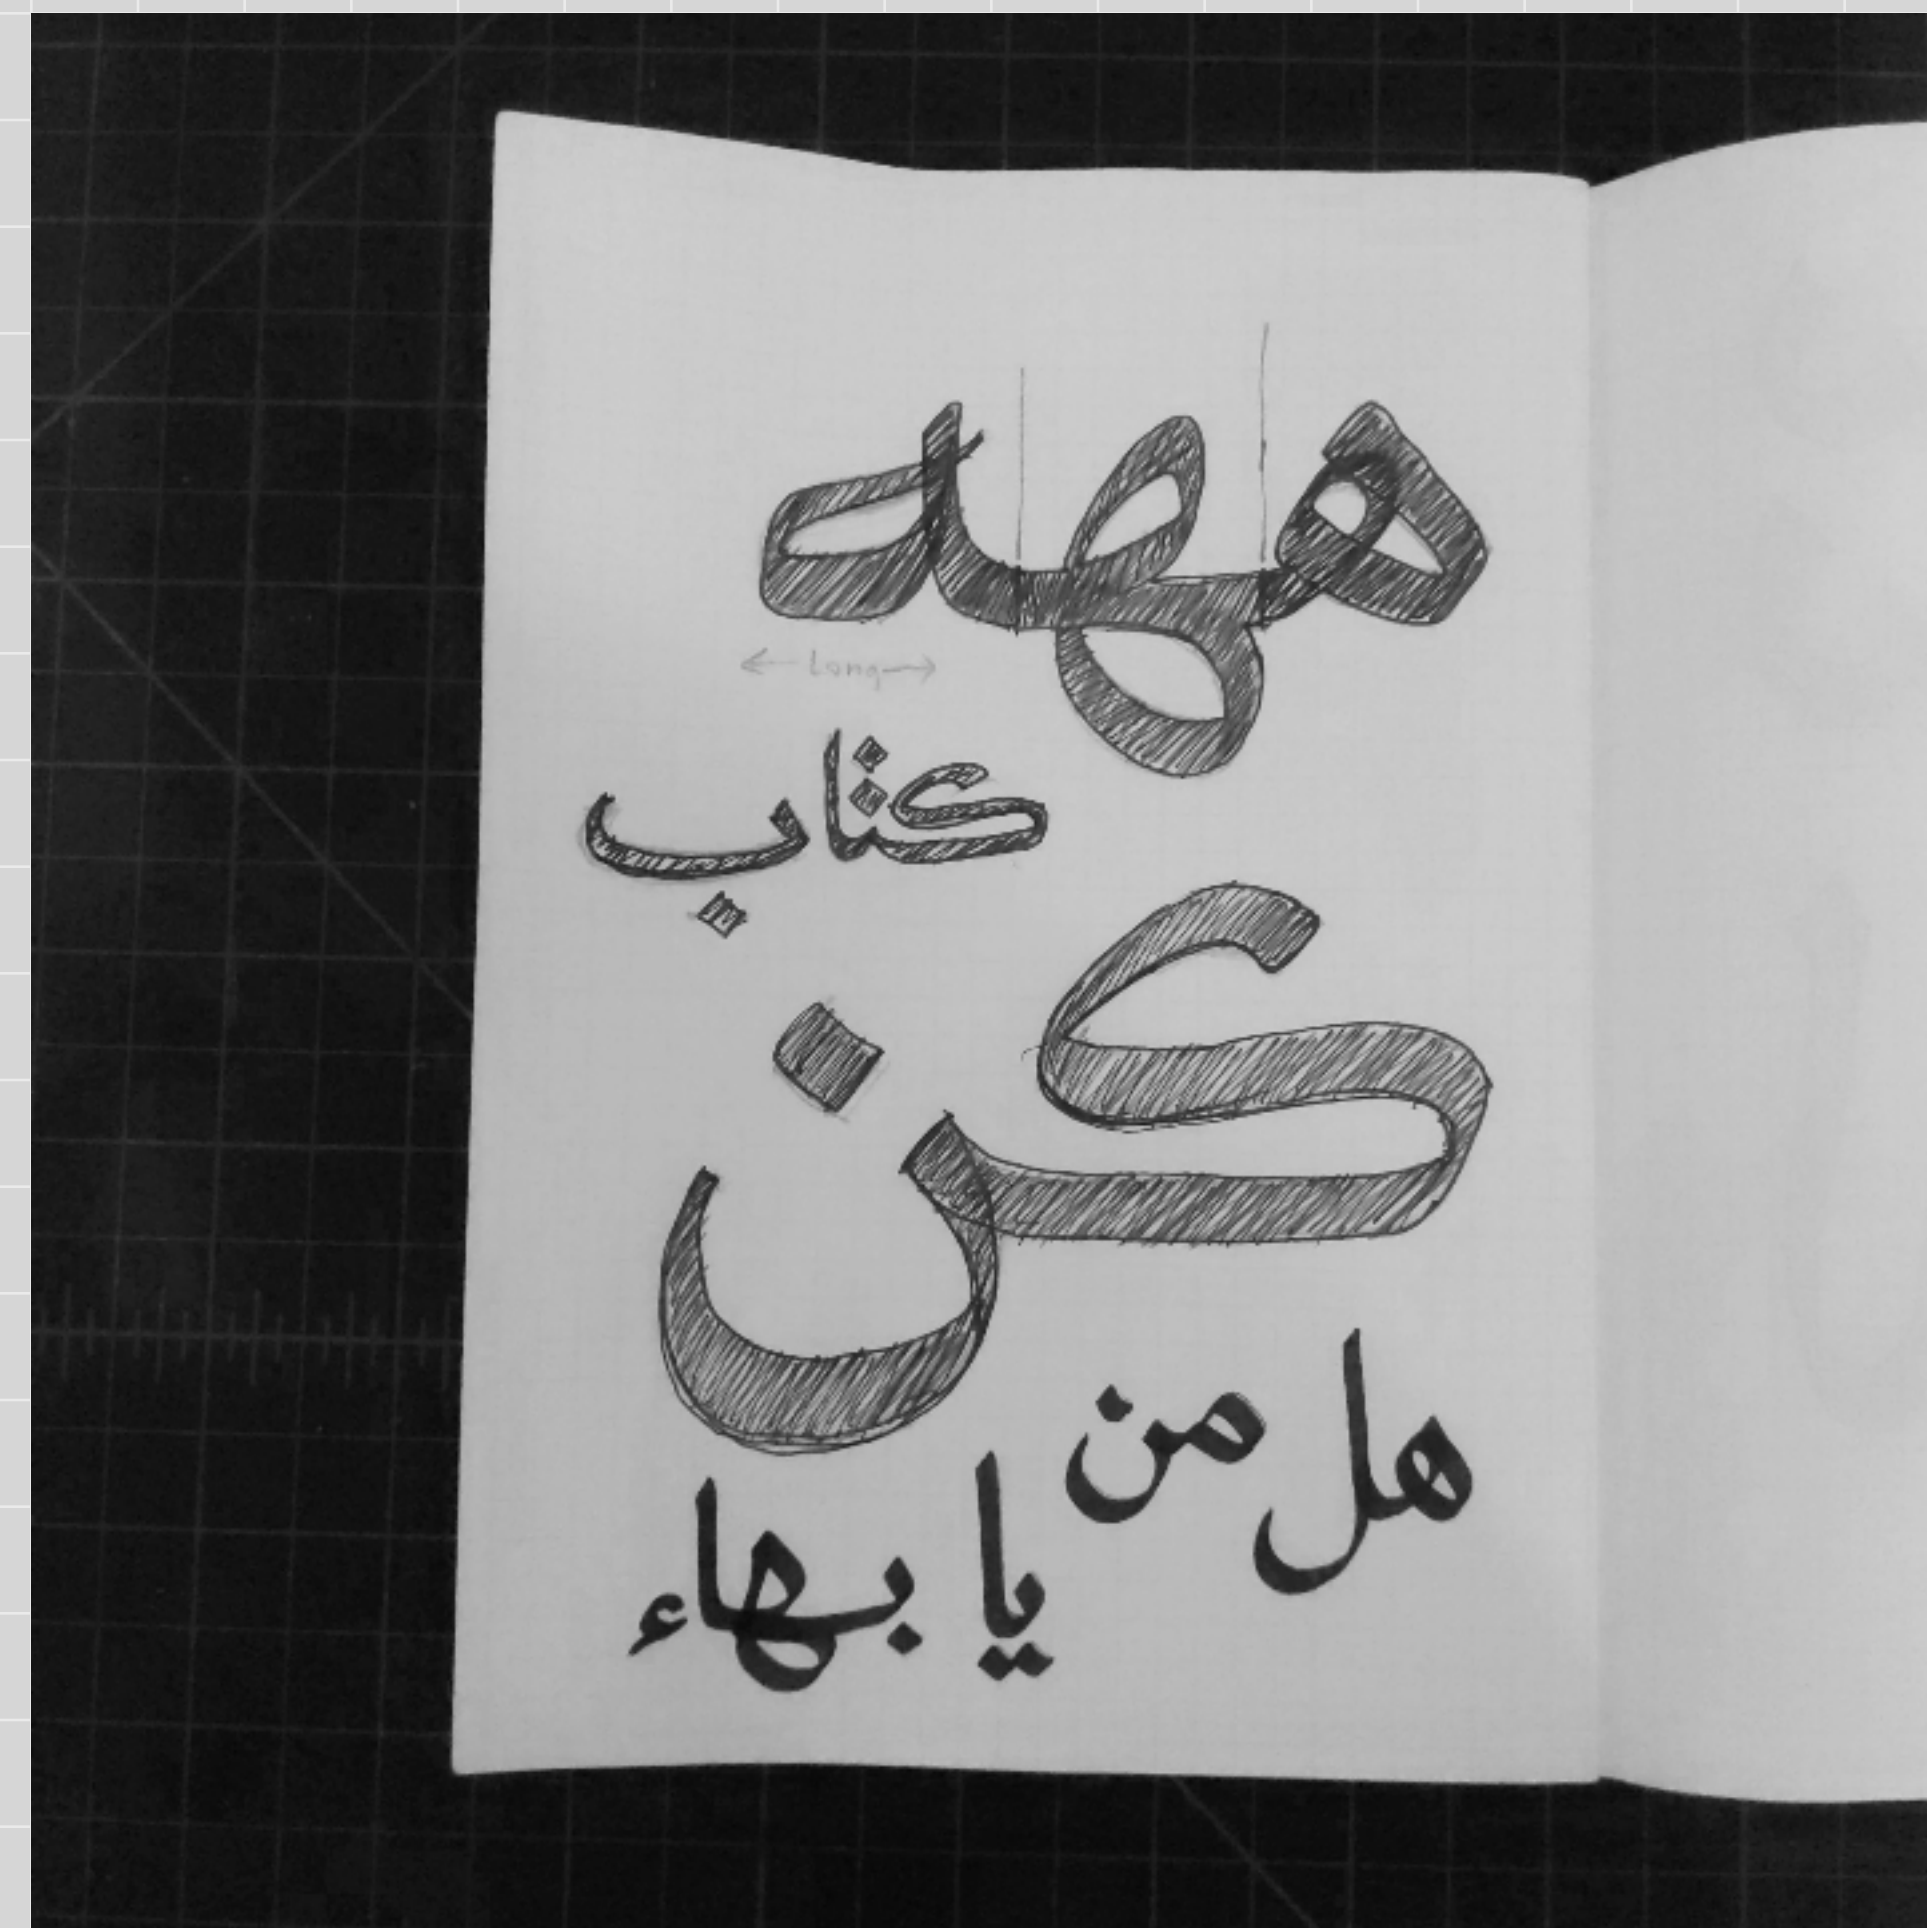 ههه
Long
كتاب
كن
هل من
يا بهاء